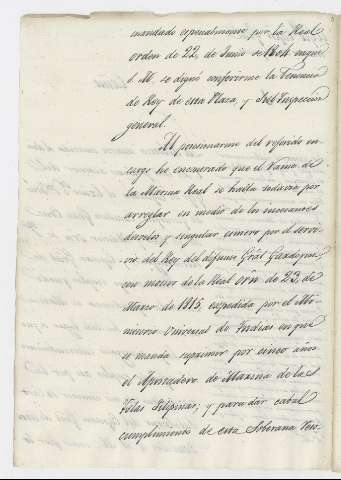 mandado especialmente por la Real
orden de 22 de Junio de 1804 en que
S. M. se dignó conferirme la Tenencia
de Rey de esta Plaza, y Sub Inspeccion
general.
Al posesionarme del referido en
cargo he encontrado que el Ramo de
la Marina Real se halla todavia por
arreglar en medio de los incesantes
desvelos y singular esmero por el servi
cio del Rey del difunto Gral Gardoqui
con motivo de la Real orñ de 23 de
Marzo de 1815 expedida por el Mi
nisterio Universal de Indias en que
se manda suprimir por cinco años
el Apostadero de Marina de las
Yslas Filipinas; y para dar cabal
cumplimiento de esta Soberana